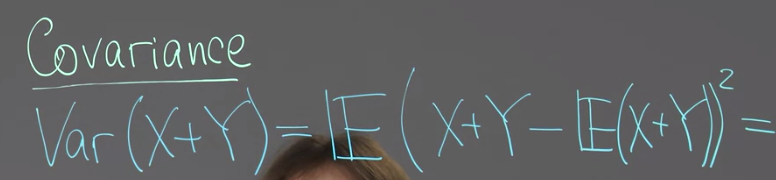 Covariance
Var(X+Y)=𝔼(X+Y-𝔼(X+Y))²=